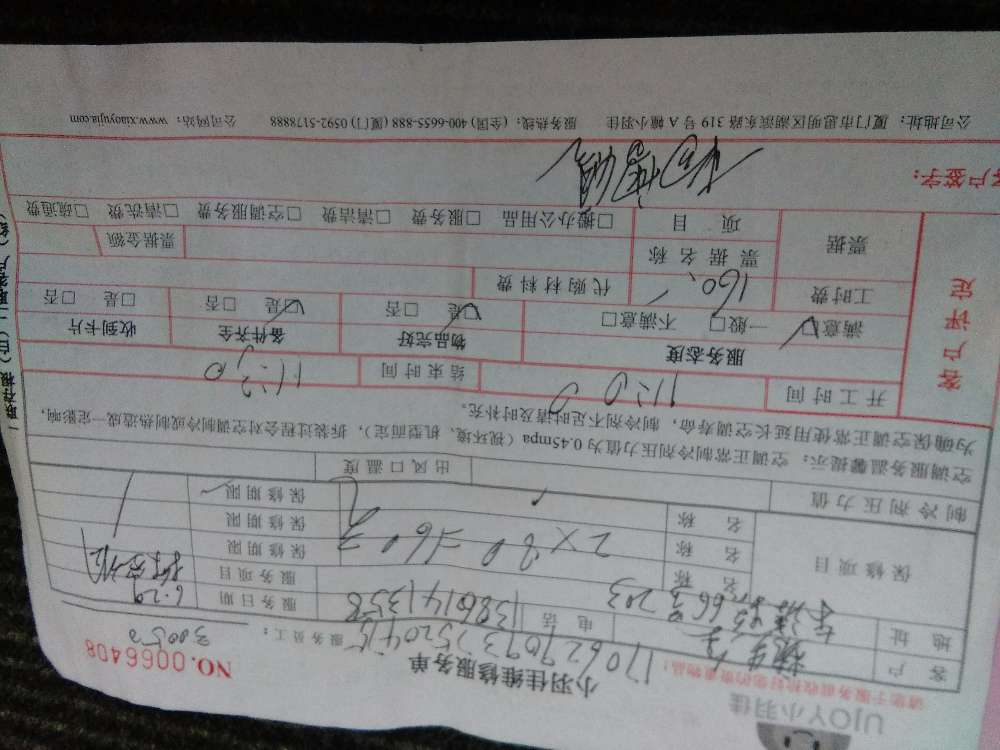 UJOY小羽佳
小羽佳维修服务单
NO.0066408
请您于服务前收拾好您的贵重物品！
服务员工：
300530
客 户
电 话
13861413558
服务日期
6.29
地 址
663 203
服务项目
保 修 项 目
名 称
保修期限
名 称
2×80=160元
保修期限
名 称
保修期限
制 冷 剂 压 力 值
出 风 口 温 度
空调服务温馨提示：空调正常制冷剂压力值为0.45mpa（视环境、机型而定），拆装过程会对空调制冷或制热造成一定影响，
为确保空调正常使用延长空调寿命，制冷剂不足时请及时补充。
客 户 评 定
开 工 时 间
11:00
结 束 时 间
11:30
服务态度
物品完好
备件齐全
收到卡片
☑满意 一般□ 不满意□
☑是 □否
☑是 □否
□是 □否
工 时 费
160
代 购 材 料 费
票 据
票 据 名 称
票据金额
项 目
□擦办公用品 □服务费 □清洁费 □空调服务费 □清洗费 □疏通费
客户签字：
公司地址：厦门市思明区湖滨东路319号A幢小羽佳 服务热线：(全国) 400-6655-888 (厦门) 0592-5178888 公司网站：www.xiaoyujia.com